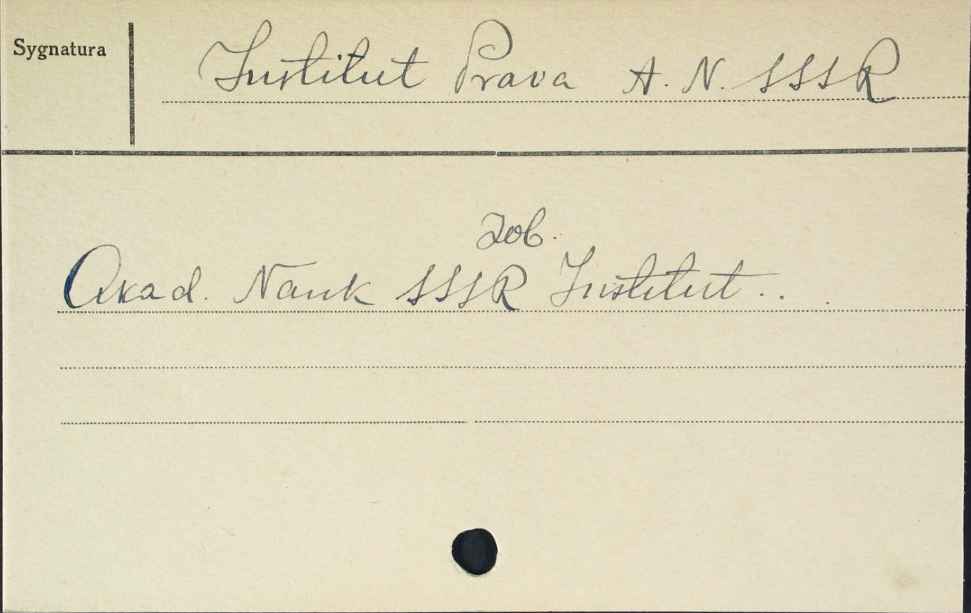 Sygnatura
Institut Prava A. N. SSSR
zob.
Akad. Nauk SSSR Institut . . .